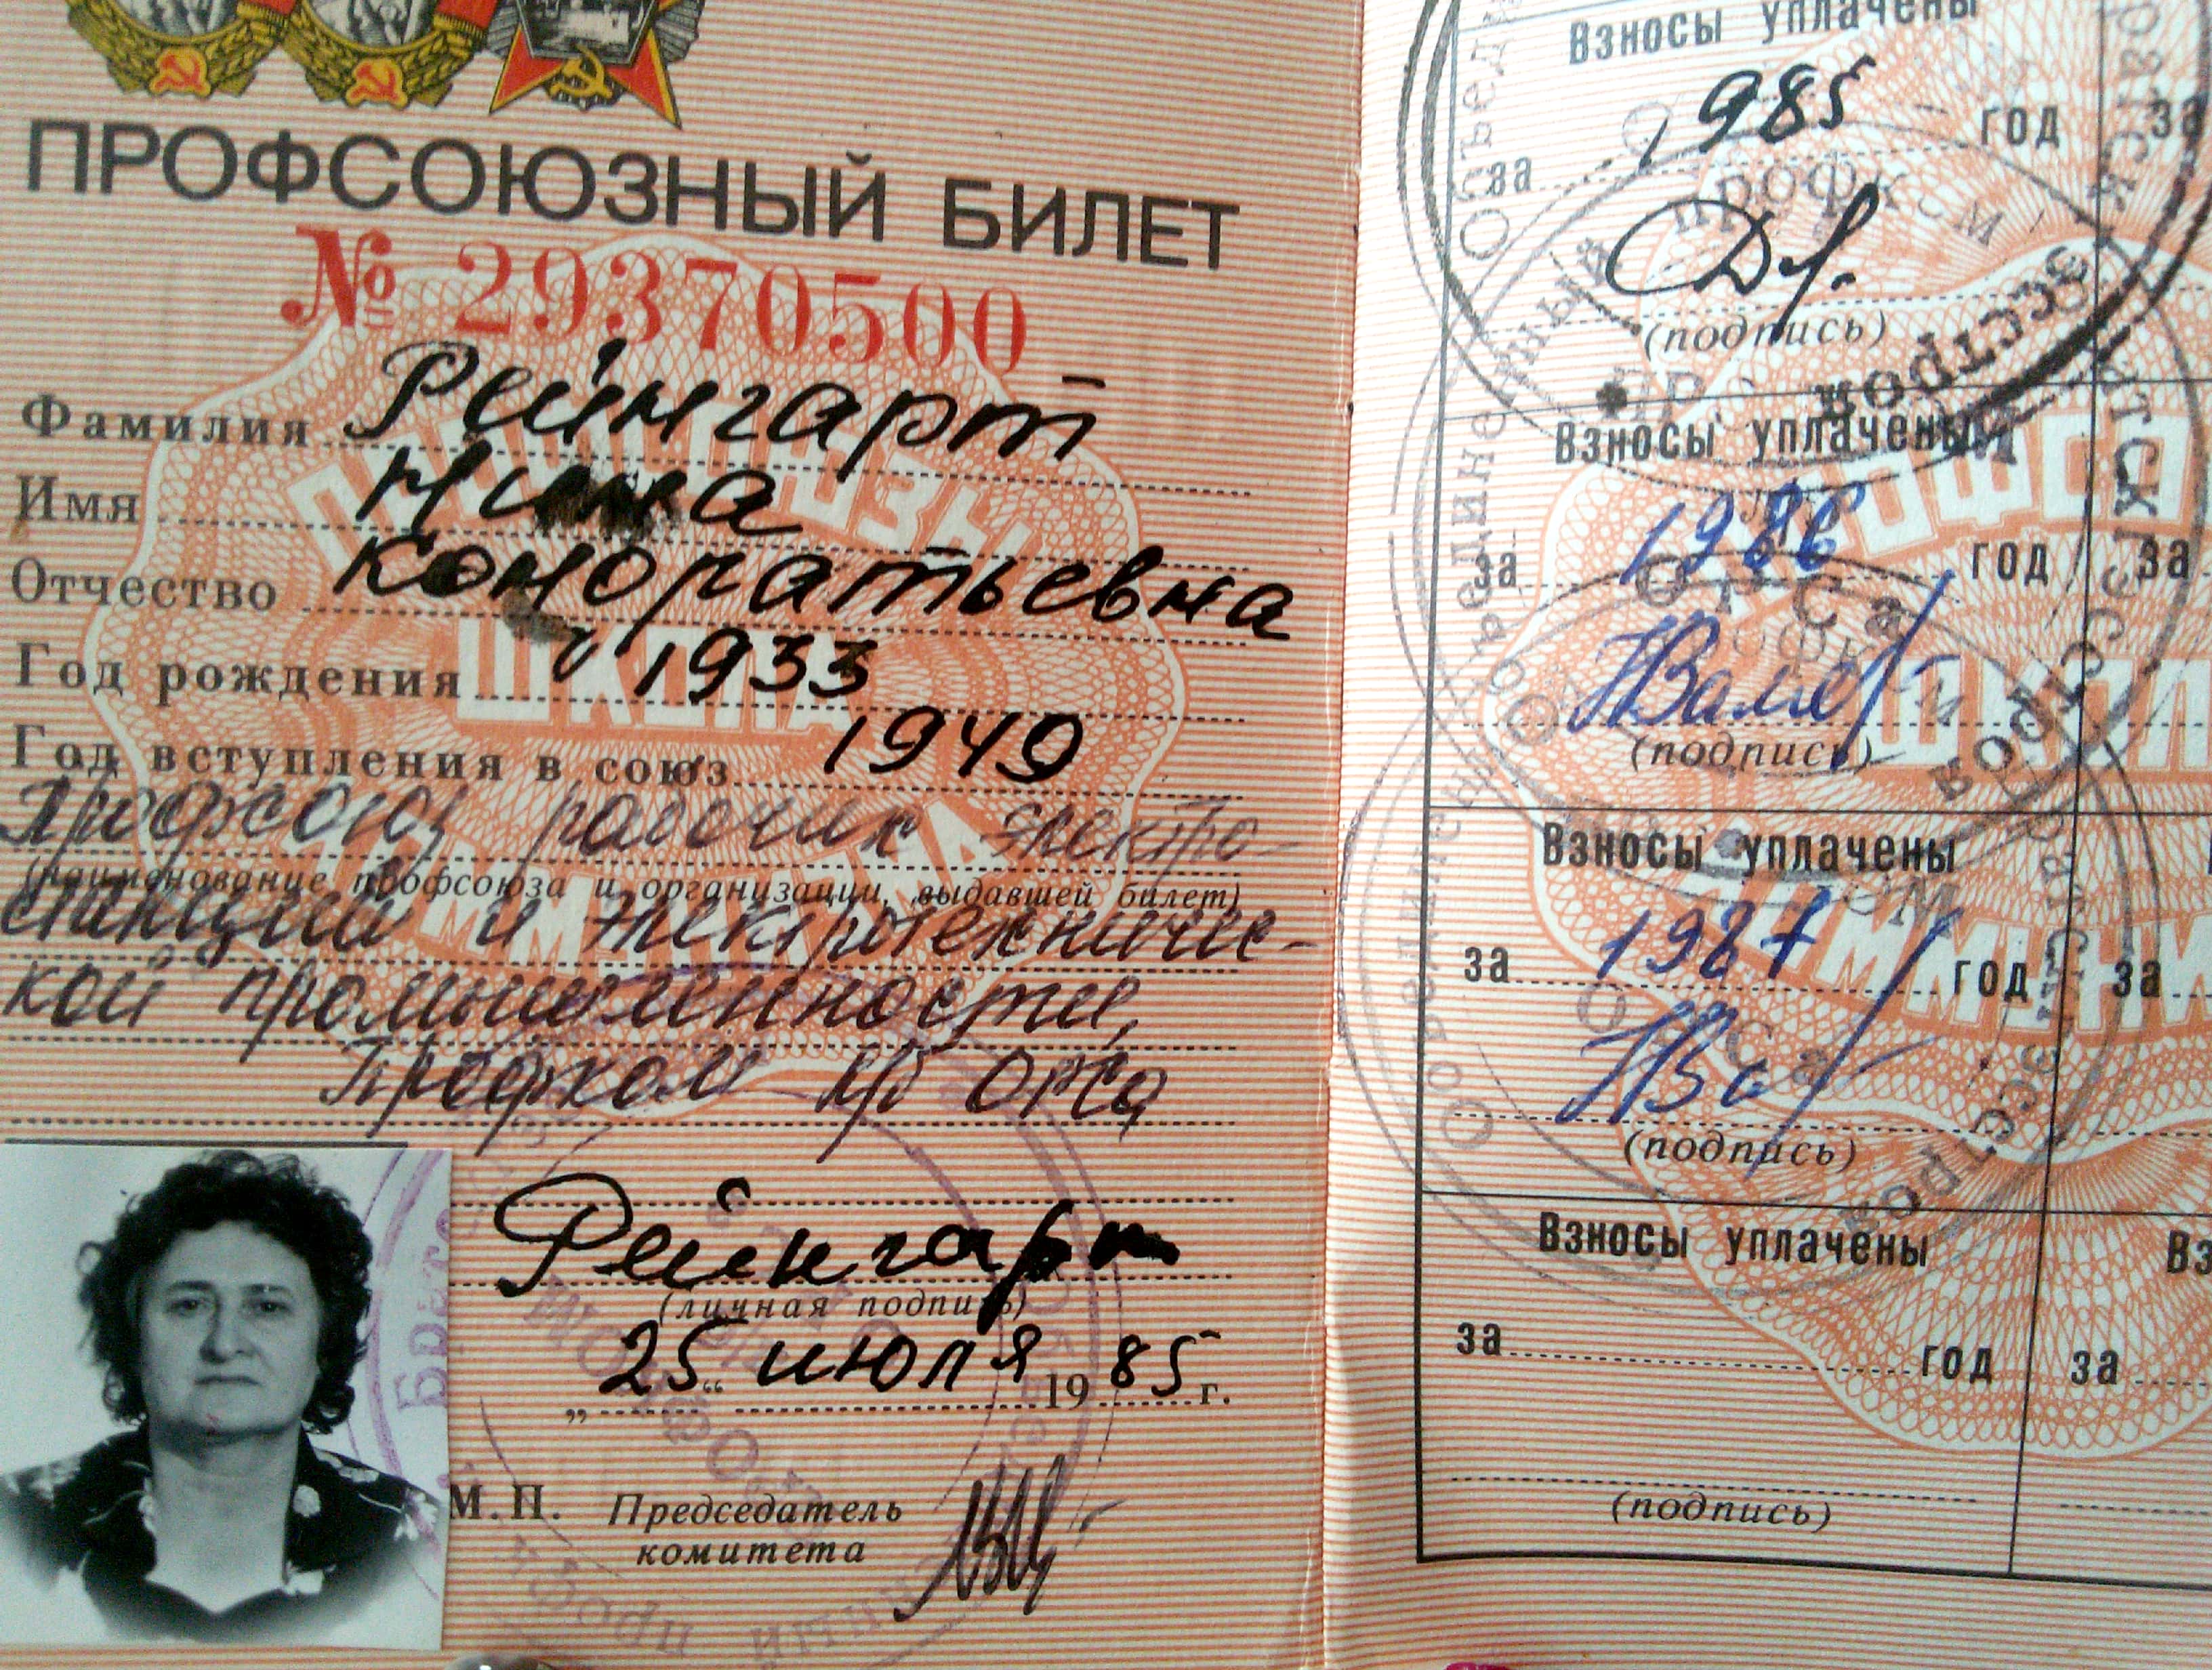 ПРОФСОЮЗНЫЙ БИЛЕТ
№ 29370500
Фамилия Рейнгарт
Имя Нина
Отчество Кондратьевна
Год рождения 1933
Год вступления в союз 1949
Профсоюз рабочих электро-
(наименование профсоюза и организации, выдавшей билет)
станций и электротехничес-
кой промышленности,
Профком УР ОРСа
Рейнгарт
(личная подпись)
„25“ июля 1985 г.
М.П. Председатель
комитета
Взносы уплачены
за 1985 год
(подпись)
Взносы уплачены
за 1986 год
(подпись)
Взносы уплачены
за 1987 год
(подпись)
Взносы уплачены
за год
(подпись)
за
за
за
за
ПРОФСОЮЗЫ
ШКОЛА
КОММУНИЗМА